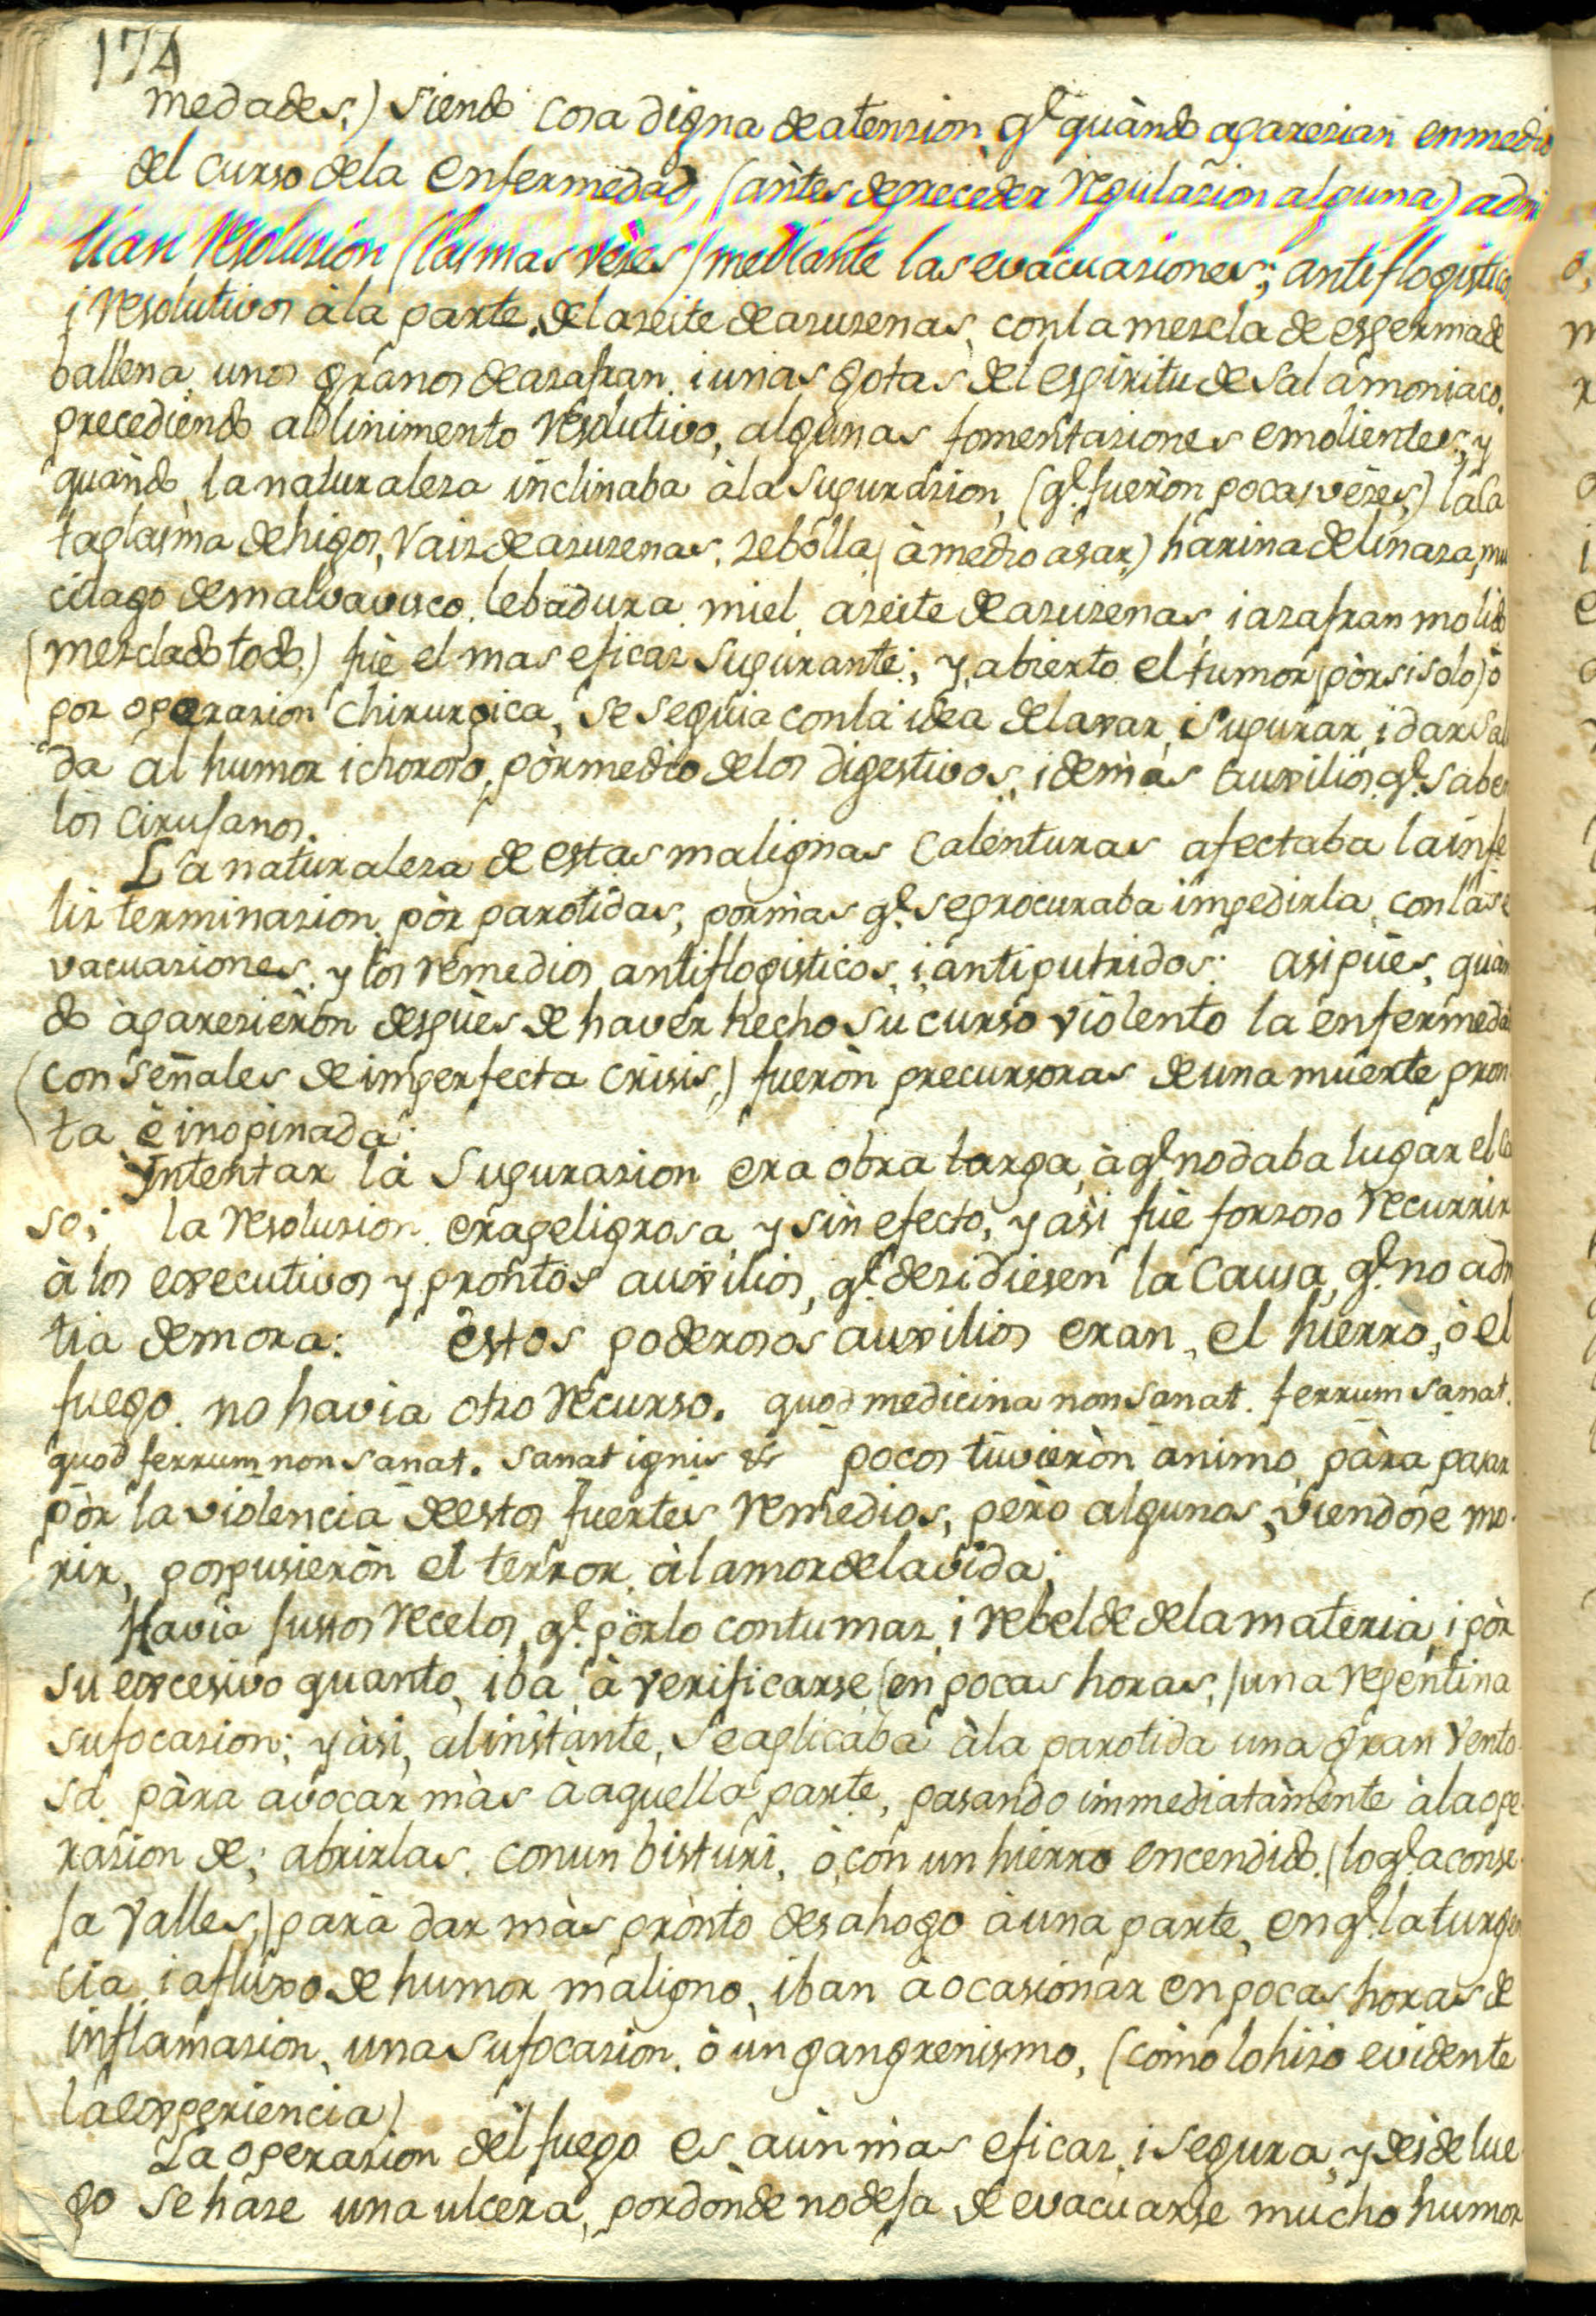 174
medades,) siendo cosa digna de atension, q.e quàndo aparesian enmedio
del curso dela enfermedad, (àntes de preceder regulasion alguna) admi
tian resolusion (las mas veses) mediante las evacuasiones; antiflogisticos,
i resolutivos àla parte, del aseite de asusenas, con la mescla de esperma de
ballena, unos granos de asafran, i unas gotas del espiritu de sal amoniaco.
precediendo al linimento resolutivo, algunas fomentasiones emolientes, y
quàndo, la naturalesa inclinaba àla supurasion, (q.e fueròn pocas veses,) la ca
taplasma de higos, rais de asusenas, sebolla, (à medio asar,) harina de linasa, mu
cilago de malvavisco, lebadura, miel, aseite de asusenas, i asafran molido
(mesclado todo,) fuè el mas eficas supurante; y, abierto el tumor (pòr si solo,) ò
por operasion chirurgica, se seguia con la idea de lavar, i supurar, i dar sali
da al humor ichoroso, pòr medio delos digestivos, i demàs auxilios, q.e saben
los cirujanos.
La naturalesa de estas malignas calenturas afectaba la infe
lis terminasion, pòr parotidas, por màs q.e se procuraba impedirla, con las e
vacuasiones, y los remedios antiflogisticos, i antiputridos: asi pües, quàn
do àparesieròn despüès de havèr hecho su curso violento la enfermedad
(con señales de imperfecta crisis,) fueròn precursoras de una muerte pron
ta è inopinada.
Yntentar la supurasion era obra larga, à q.e no daba lugar el ca
so; la resolusion, era peligrosa, y sin efecto, y asi fuè forsoso recurrir
à los executivos y prontos auxilios, q.e desidiesen la causa, q.e no admi
tia demora: èstos poderosos auxilios eran, el hierro, ò el
fuego, no havia otro recurso. quod medicina non sanat. ferrum sanat.
quod ferrum non sanat. sanat ignis &c pocos tuvieròn ànimo, pàra pasar
pòr la violencia de estos fuertes remedios, però algunos, viendose mo-
rir, pospusieròn el terror, àl amor dela vida.
Havia justos recelos, q.e pòr lo contumas, i rebelde dela materia, i pòr
su excesivo quanto, iba à verificarse (en pocas horas,) una repentina
sufocasion; y àsi, al instante, se aplicaba àla parotida una gran vento-
sa pàra avocar màs à aquella parte, pasando immediatàmente àla ope-
rasion de; abrirlas, con un bisturi, ò, con un hierro encendido, (lo q.e aconse-
ja Valles,) para dar màs prònto desahogo à una parte, en q.e la turgen
cia, i afluxo de humor maligno, iban à ocasionar en pocas horas de
inflamasion, una sufocasion, ò un gangrenismo, (còmo lo hiso evidente
la experiencia)
La operasion del fuego es aùn màs eficas, i segura, y desde lue
go se hase una ulcera, por dònde no deja de evacuarse mucho humor